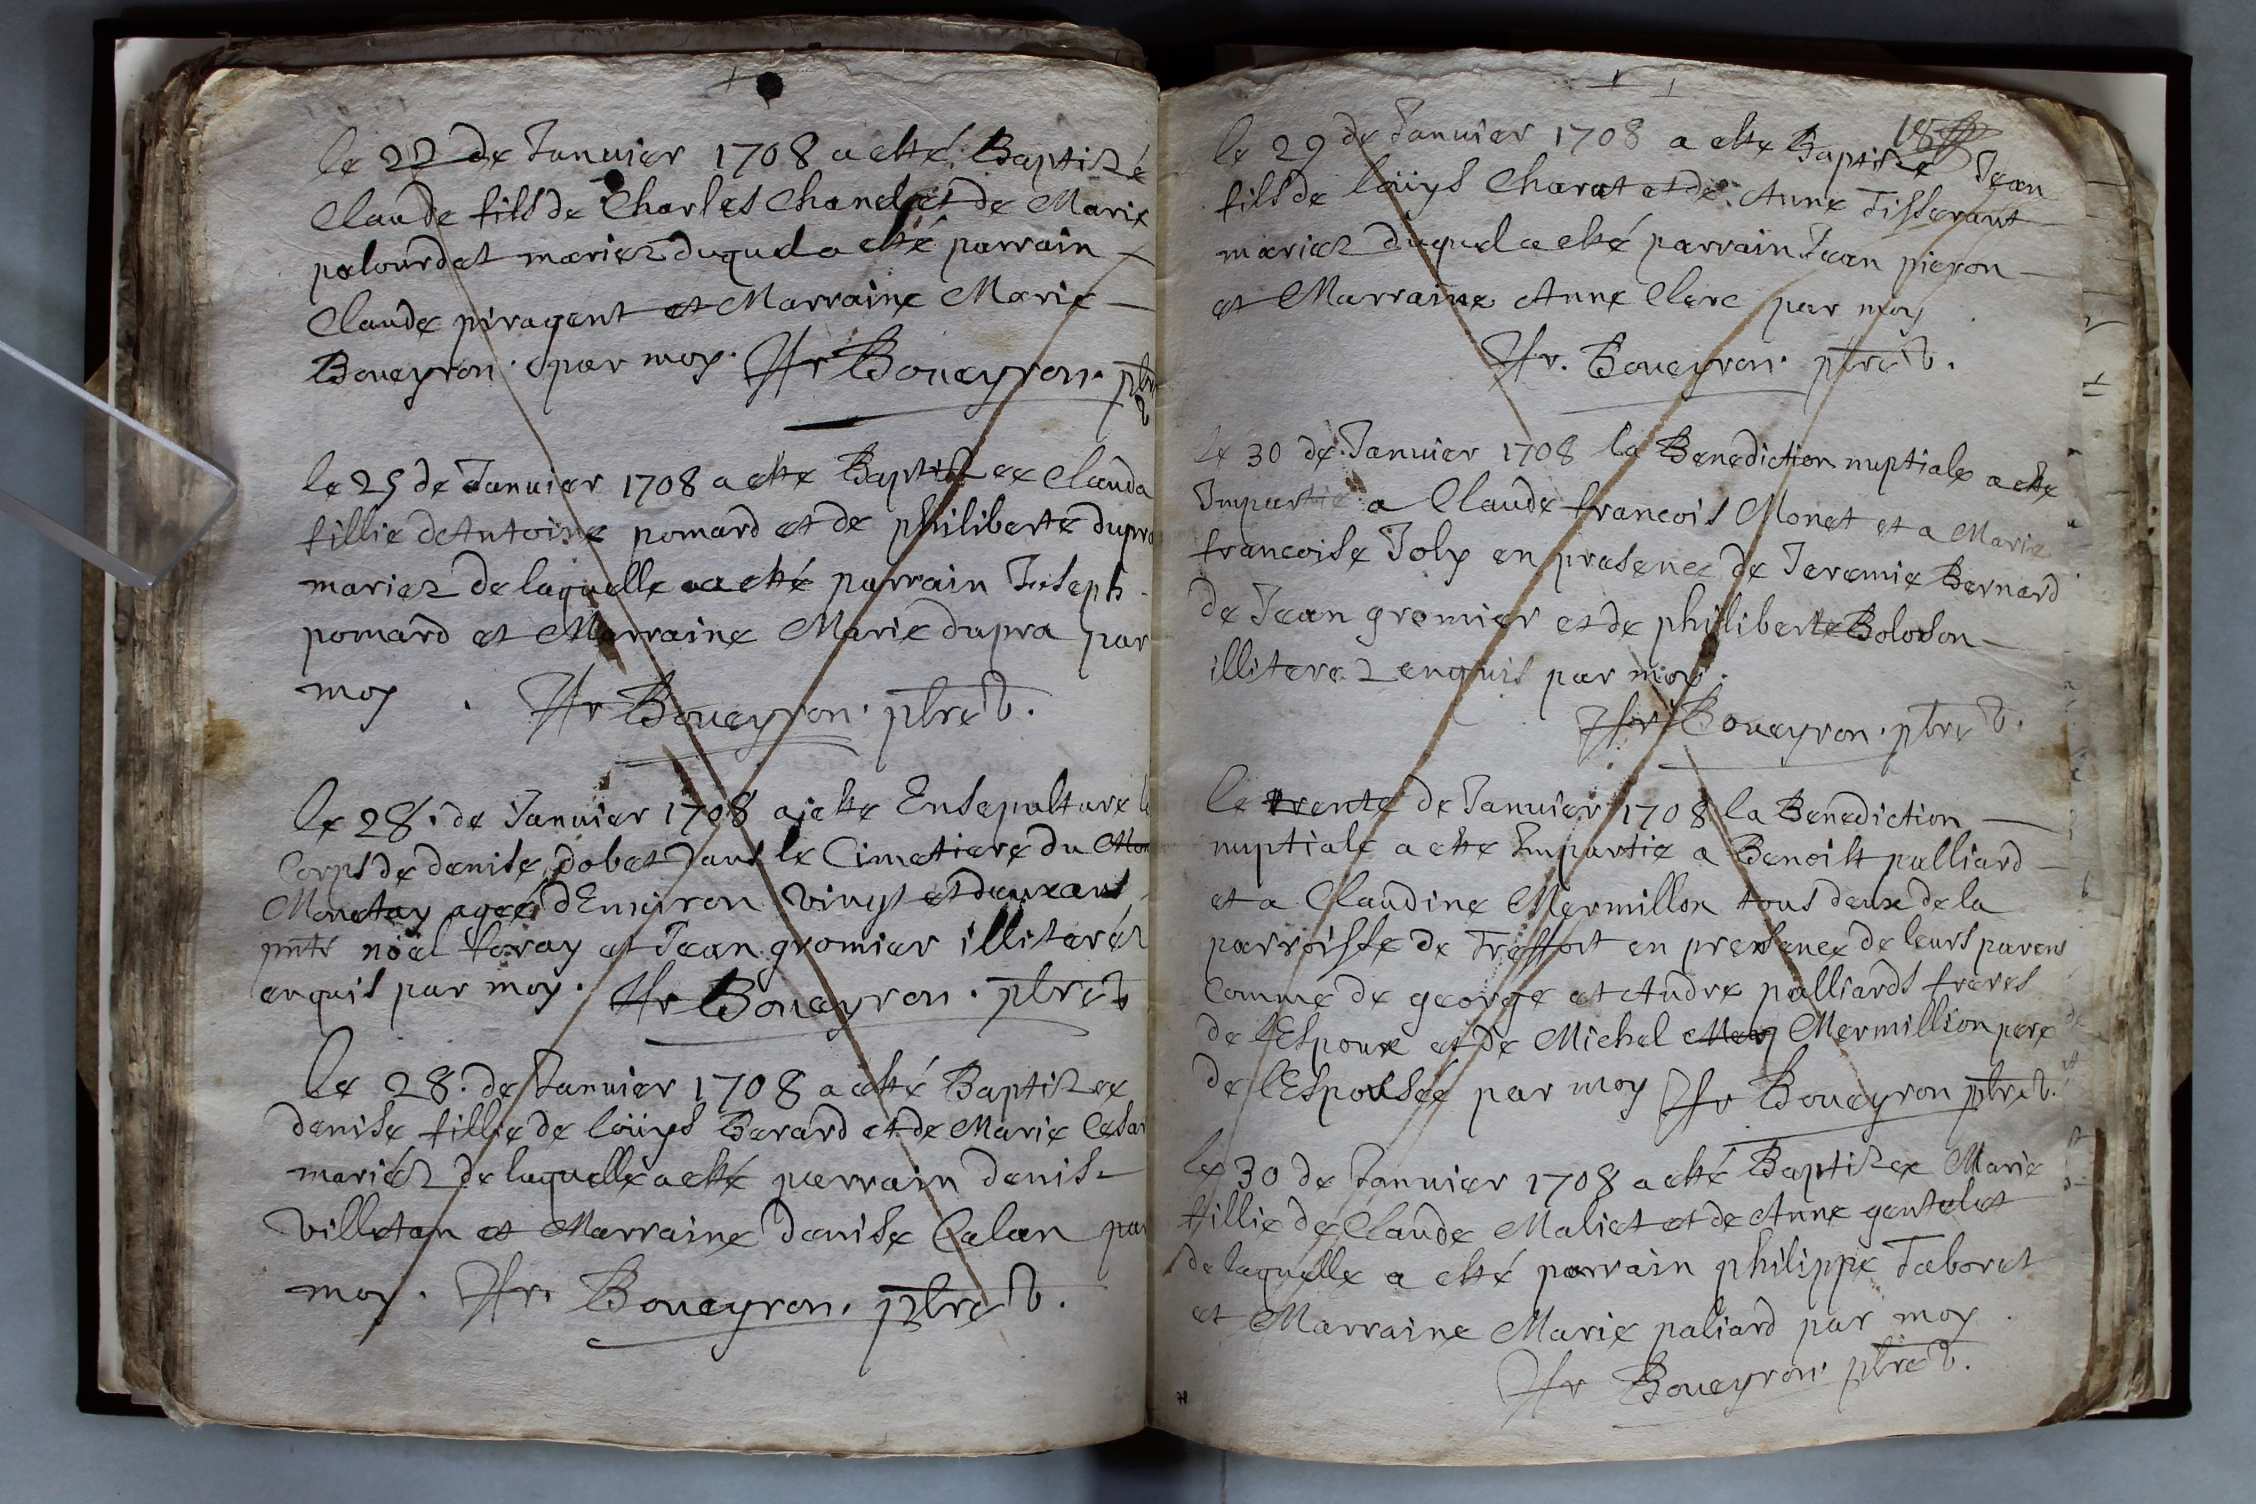 le 22 de Januier 1708 a esté Baptizé
Claude fils de Charles Chanel et de Marie
palourdet mariez duquel a esté parrain
Claude piragent et Marraine Marie
Boueyron. par moy. Hr Boueyron. ptre
le 25 de Januier 1708 a este Baptizee Clauda
fillie dAntoine pomard et de philiberte dupra
mariez de laquelle a esté parrain Joseph
pomard et Marraine Marie dupra par
moy. Hr Boueyron. ptre V.
le 28. de Januier 1708 a este Ensepulture le
Corps de denise dobet dans le Cimetiere du
Monetay agée dEnuiron vingt et deux ans
pnts noel foray et Jean gromier illiteréz
enquis par moy. Hr Boueyron. ptre V
le 28. de Januier 1708 a esté Baptizee
denise fillie de loüys Berard et de Marie Cesar
mariéz de laquelle a esté parrain denis
villetan et Marraine denise Calan par
moy. Hr. Boueyron. ptre V.
18
le 29 de Januier 1708 a este Baptizé Jean
fils de loüys Charat et de Anne Tisserant
mariez duquel a esté parrain Jean pieron
et Marraine Anne Clerc par moy
Hr. Boueyron. ptre V.
le 30 de Januier 1708 la Benediction nuptiale a este
Impartie a Claude francois Monet et a Marie
francoise Joly en presence de Jeremie Bernard
de Jean gromier et de philiberte Boloson
illiterez enquis par moy.
Hr Boueyron. ptre V.
le trente de Januier 1708 la Benediction
nuptiale a este Impartie a Benoist palliard
et a Claudine Mermillon tous deux de la
parroisse de Treffort en presence de leurs parens
Comme de george et Andre palliards freres
de lEspoux et de Michel Mer Mermillion pere
de lEspousée par moy Hr Boueyron ptre V.
le 30 de Januier 1708 a esté Baptizee Marie
fillie de Claude Maliet et de Anne gentelet
de laquelle a esté parrain philippe Taboret
et Marraine Marie paliard par moy
Hr Boueyron. ptre V.